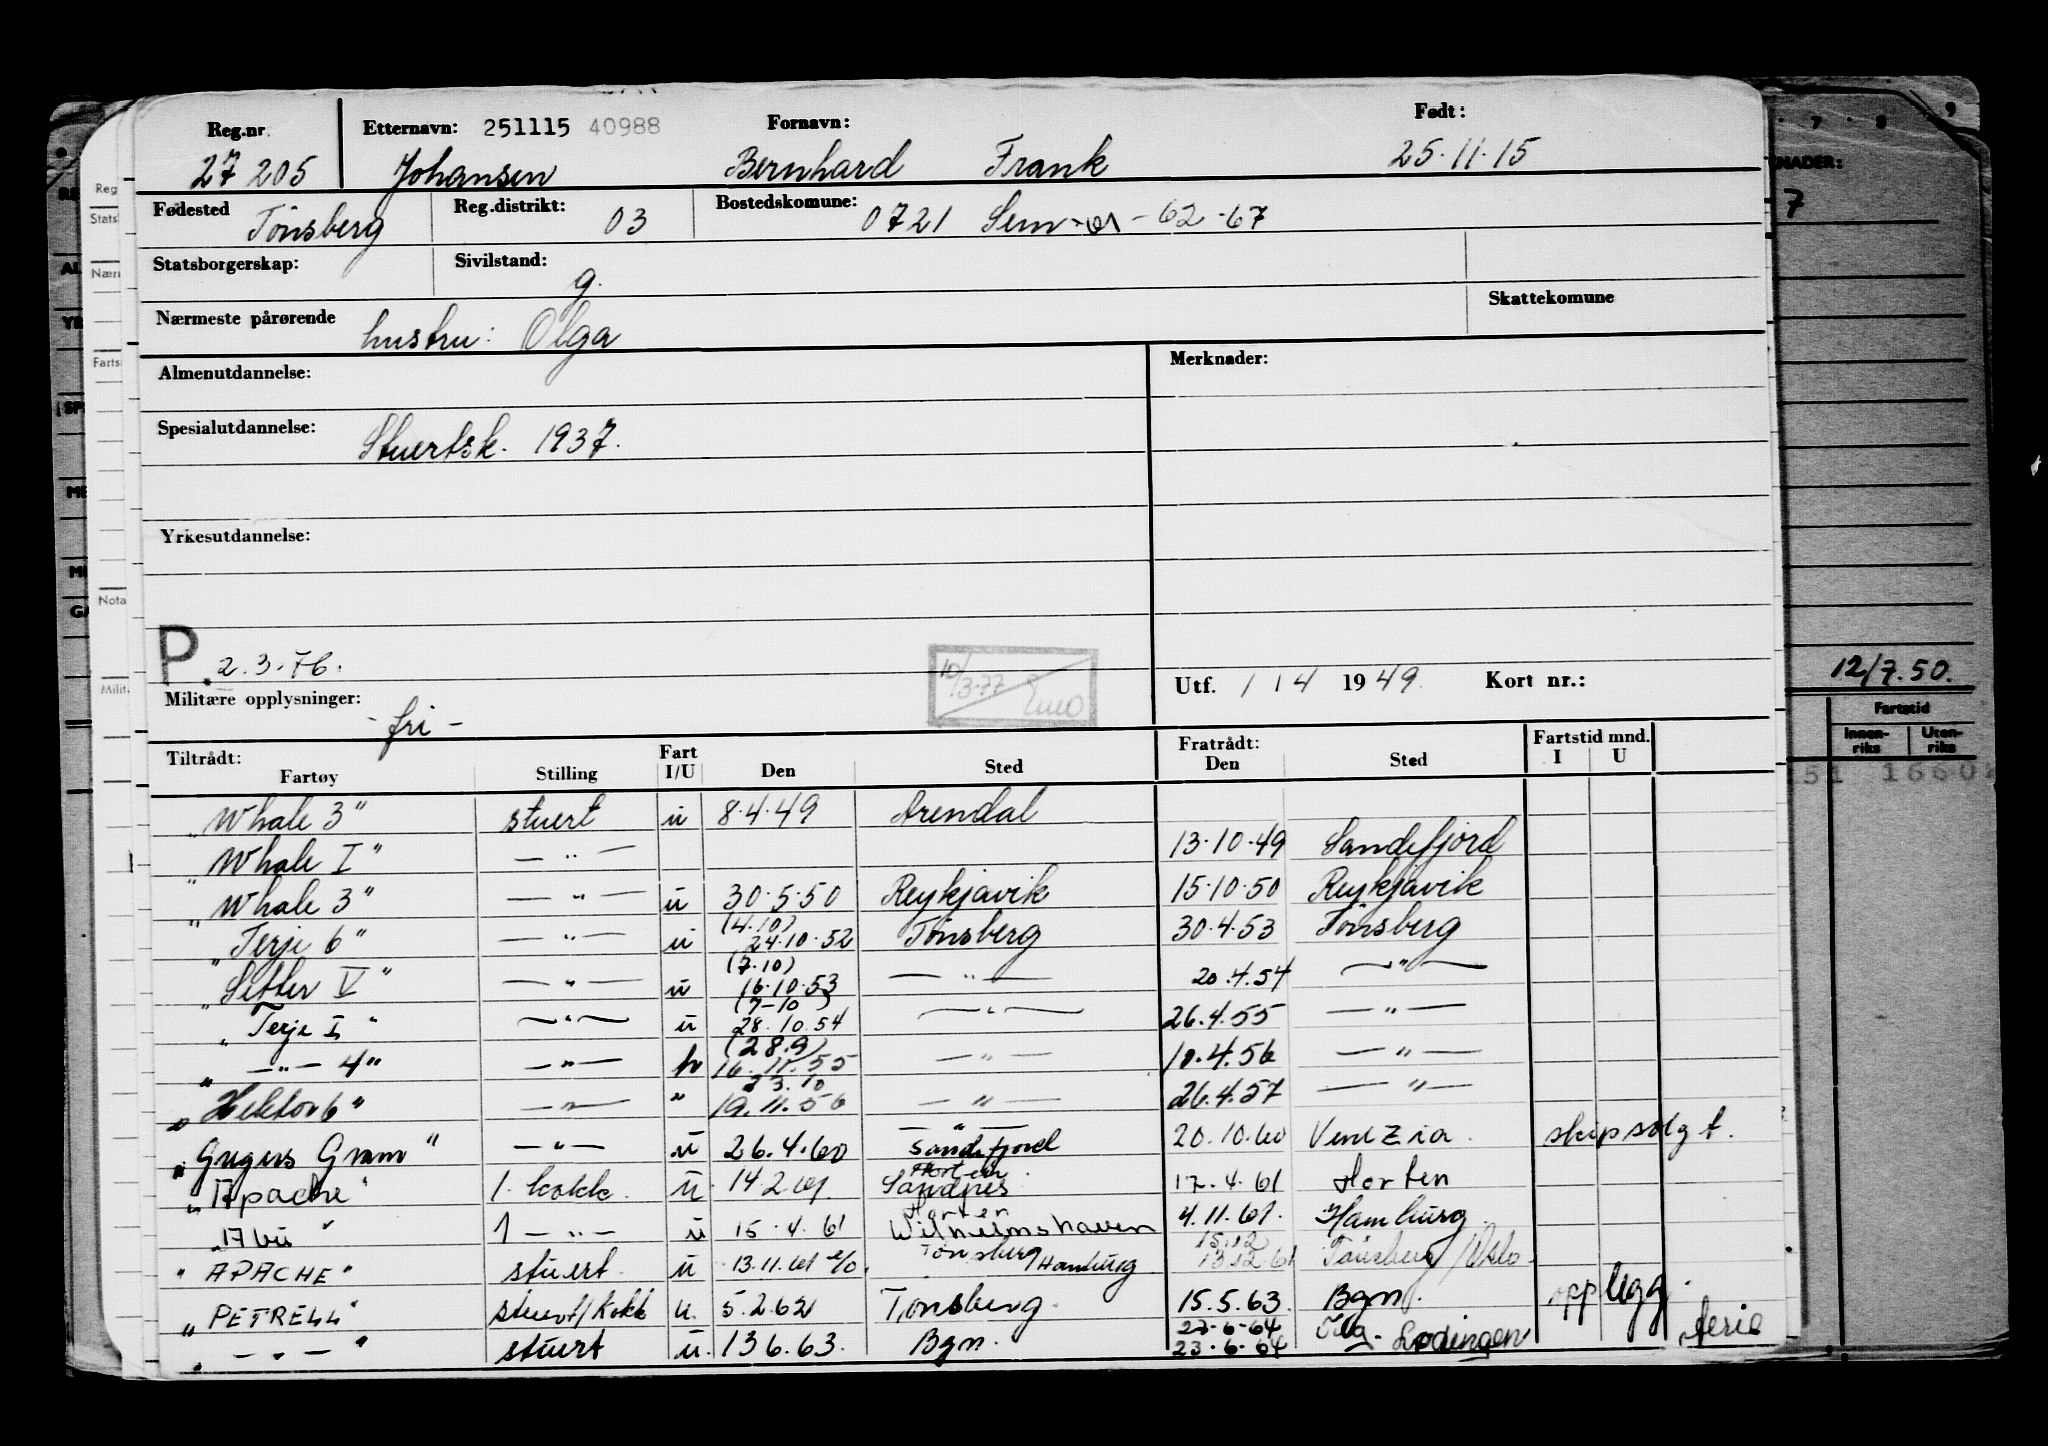 Reg.nr. Etternavn: 251115 40988 Fornavn: Født:
27 205 Johansen Bernhard Frank 25.11.15
Fødested Tönsberg Reg.distrikt: 03 Bostedskomune: 0721 Sem -61-62-67
Statsborgerskap: Sivilstand: g.
Nærmeste pårørende hustru: Olga Skattekomune
Almenutdannelse: Merknader:
Spesialutdannelse: Stuertsk. 1937.
Yrkesutdannelse:
P. 2.3.76.
10/3-77
Militære opplysninger: - fri -
Utf. 1/4 1949. Kort nr.:
Tiltrådt: Fart Fratrådt: Fartstid mnd.
Fartøy Stilling I/U Den Sted Den Sted I U
"Whale 3" stuert u 8.4.49 Arendal
"Whale I" -"- 13.10.49 Sandefjord
"Whale 3" -"- u 30.5.50 Reykjavik 15.10.50 Reykjavik
"Terje 6" -"- u (4.10) 24.10.52 Tönsberg 30.4.53 Tönsberg
"Setter V" -"- u (7.10) 16.10.53 -"- 20.4.54 -"-
"Terje I" -"- u (7-10) 28.10.54 -"- 26.4.55 -"-
" -"- 4" -"- (28.9) 16.11.55 -"- 10.4.56 -"-
"Hektor 6" -"- " 23.10 19.11.56 -"- 26.4.57 -"-
"Gregers Gram" -"- u 26.4.60 -"- Sandefjord 20.10.60 Venezia. skip solgt.
"Apache" 1. kokk. u 14.2.61. Horten Sandnes 17.4.61 Horten
1 -"- u 15.4.61 Horten Wilhelmshaven 4.11.61. Hamburg.
"APACHE" stuert. u 13.11.61 Tönsberg/Hamburg 15.12 13.12.61 Tönsberg/Oslo.
"PETRELL" stuert/kokk u. 5.2.62 Tønsberg. 15.5.63. Bgn. opplegg.
" -"- " stuert u. 13 6.63. Bgn. 27-6-64 23.6.64 Lødingen ferie
12/7.50.
Fartstid
Innen-riks Uten-riks